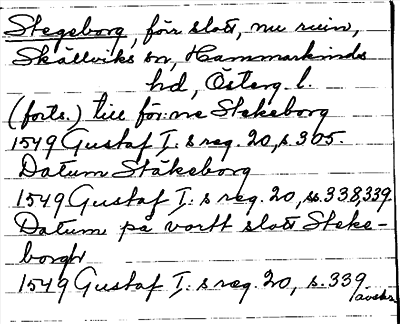 Stegeborg, förr slott, nu ruin,
Skällviks sn, Hammarkinds
hd, Österg. l.
(forts.) till för:ne Stekeborg
1549 Gustaf I: s reg. 20, s. 305.
Datum Stäkeborg
1549 Gustaf I: s reg. 20, ss. 338, 339
Datum på vortt slott Steke-
borgh
1549 Gustaf I: s reg. 20, s. 339